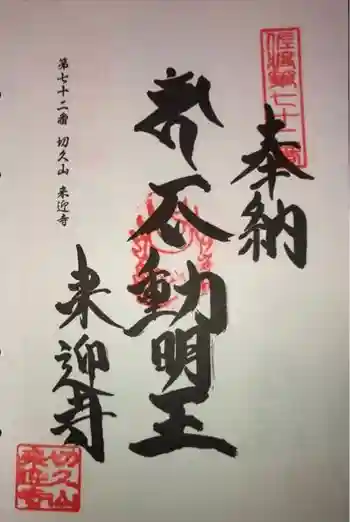 奉納
不動明王
来迎寺
第七十二番 切久山 来迎寺
切久山
来迎寺